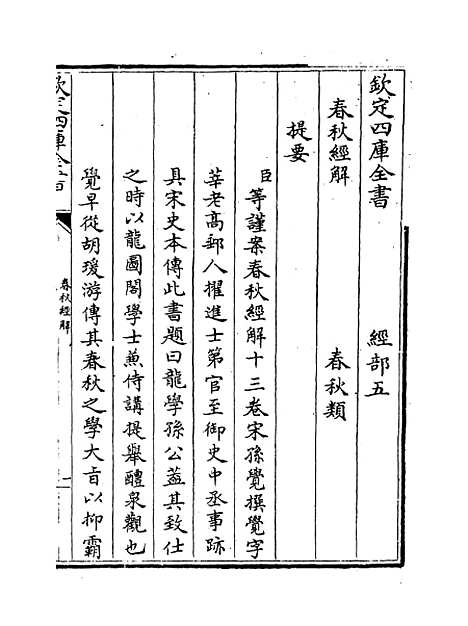 欽定四庫全書　　經部五
春秋經解　　春秋類
提要
臣等謹案春秋經解十三卷宋孫覺撰覺字
莘老高郵人擢進士第官至御史中丞事跡
具宋史本傳此書題曰龍學孫公葢其致仕
之時以龍圖閣學士兼侍講提舉醴泉觀也
覺早從胡瑗游傳其春秋之學大旨以抑霸
欽定四庫全書
春秋經解
一